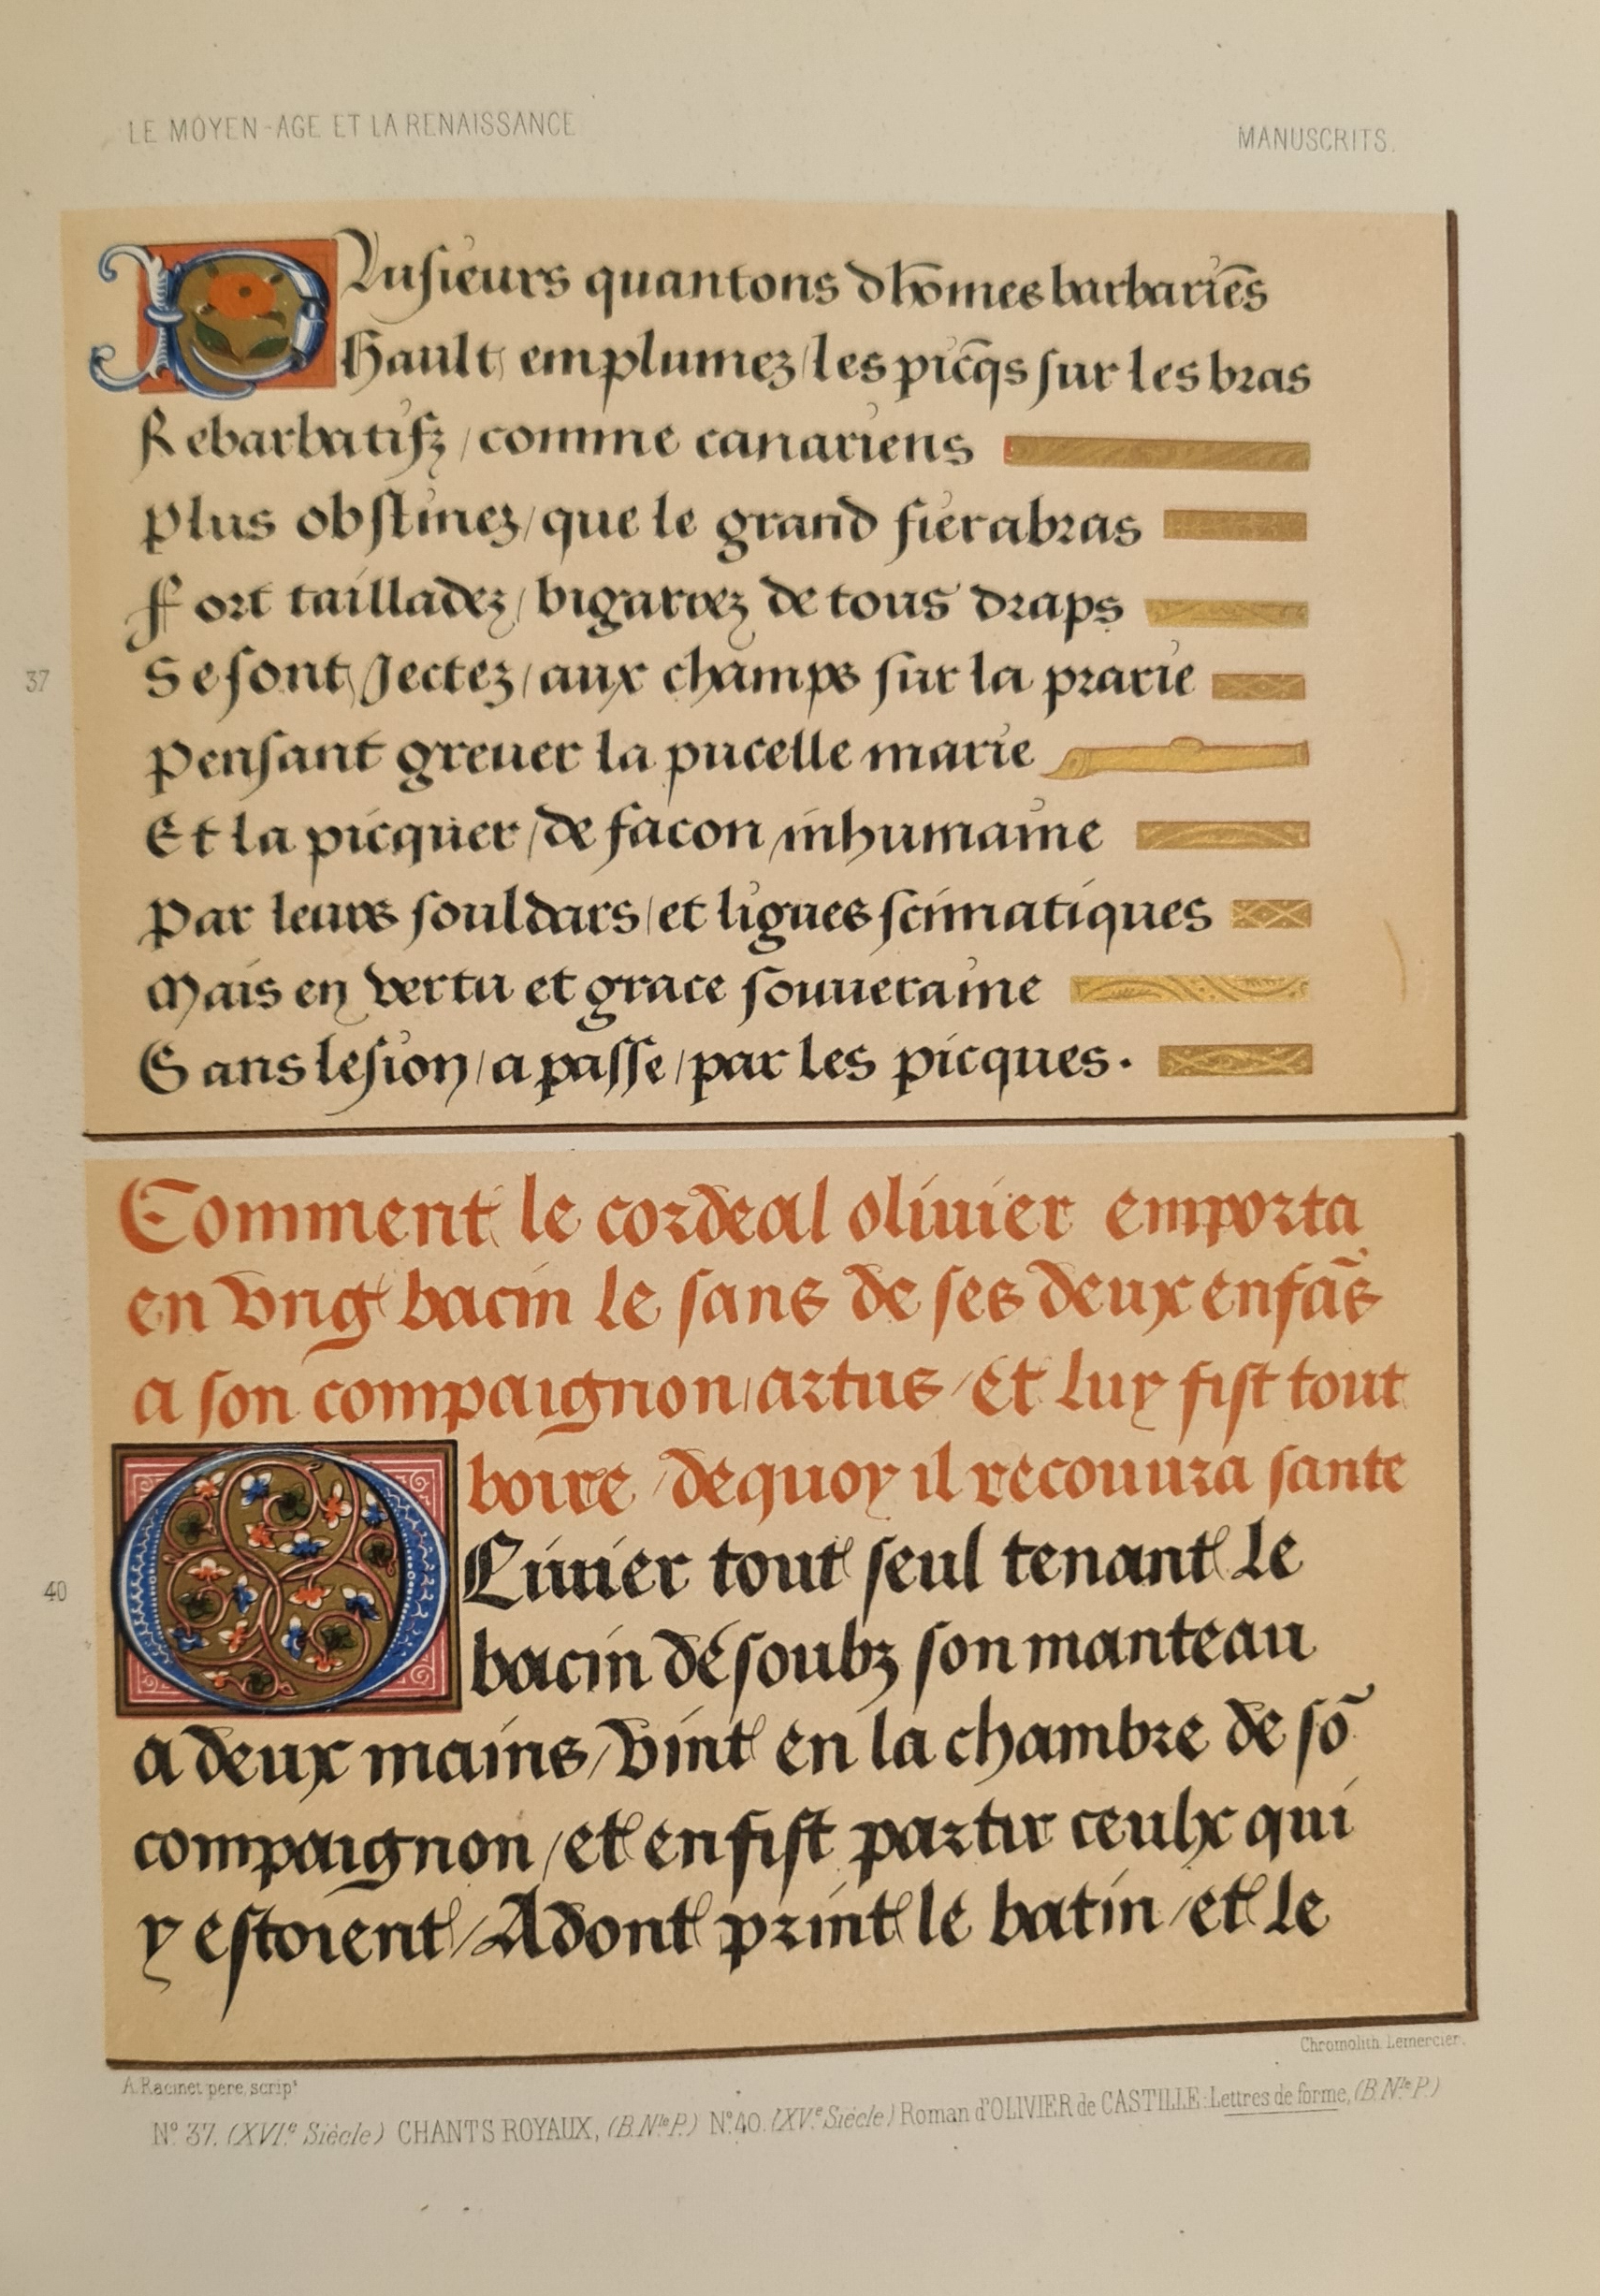 LE MOYEN-AGE ET LA RENAISSANCE
MANUSCRITS.
PLusieurs quantons dhõmes barbariẽs
Hault emplumez / les picq̃s sur les bras
Rebarbatifz / comme canariens
Plus obstinez / que le grand fierabras
Fort tailladez / bigarrez de tous draps
Se sont Jectez / aux champs sur la prarie
37
Pensant greuer la pucelle marie
Et la picquer / de facon inhumaine
Par leurs souldars / et ligues scimatiques
Mais en vertu et grace souueraine
Sans lesion / a passe / par les picques.
Comment le cordeal oliuier emporta
en vng bacin le sans de ses deux enfãs
a son compaignon / artus / et luy fist tout
boire / de quoy il recouura sante
OLiuier tout seul tenant le
40
bacin desoubz son manteau
a deux mains / vint en la chambre de sõ
compaignon / et en fist partir ceulx qui
y estoient / Adont print le batin / et le
Chromolith. Lemercier.
A. Racinet pere, script
Nº 37. (XVI.e Siècle) CHANTS ROYAUX, (B. Nle P.) Nº 40. (XV.e Siècle) Roman d'OLIVIER de CASTILLE: Lettres de forme, (B. Nle P.)